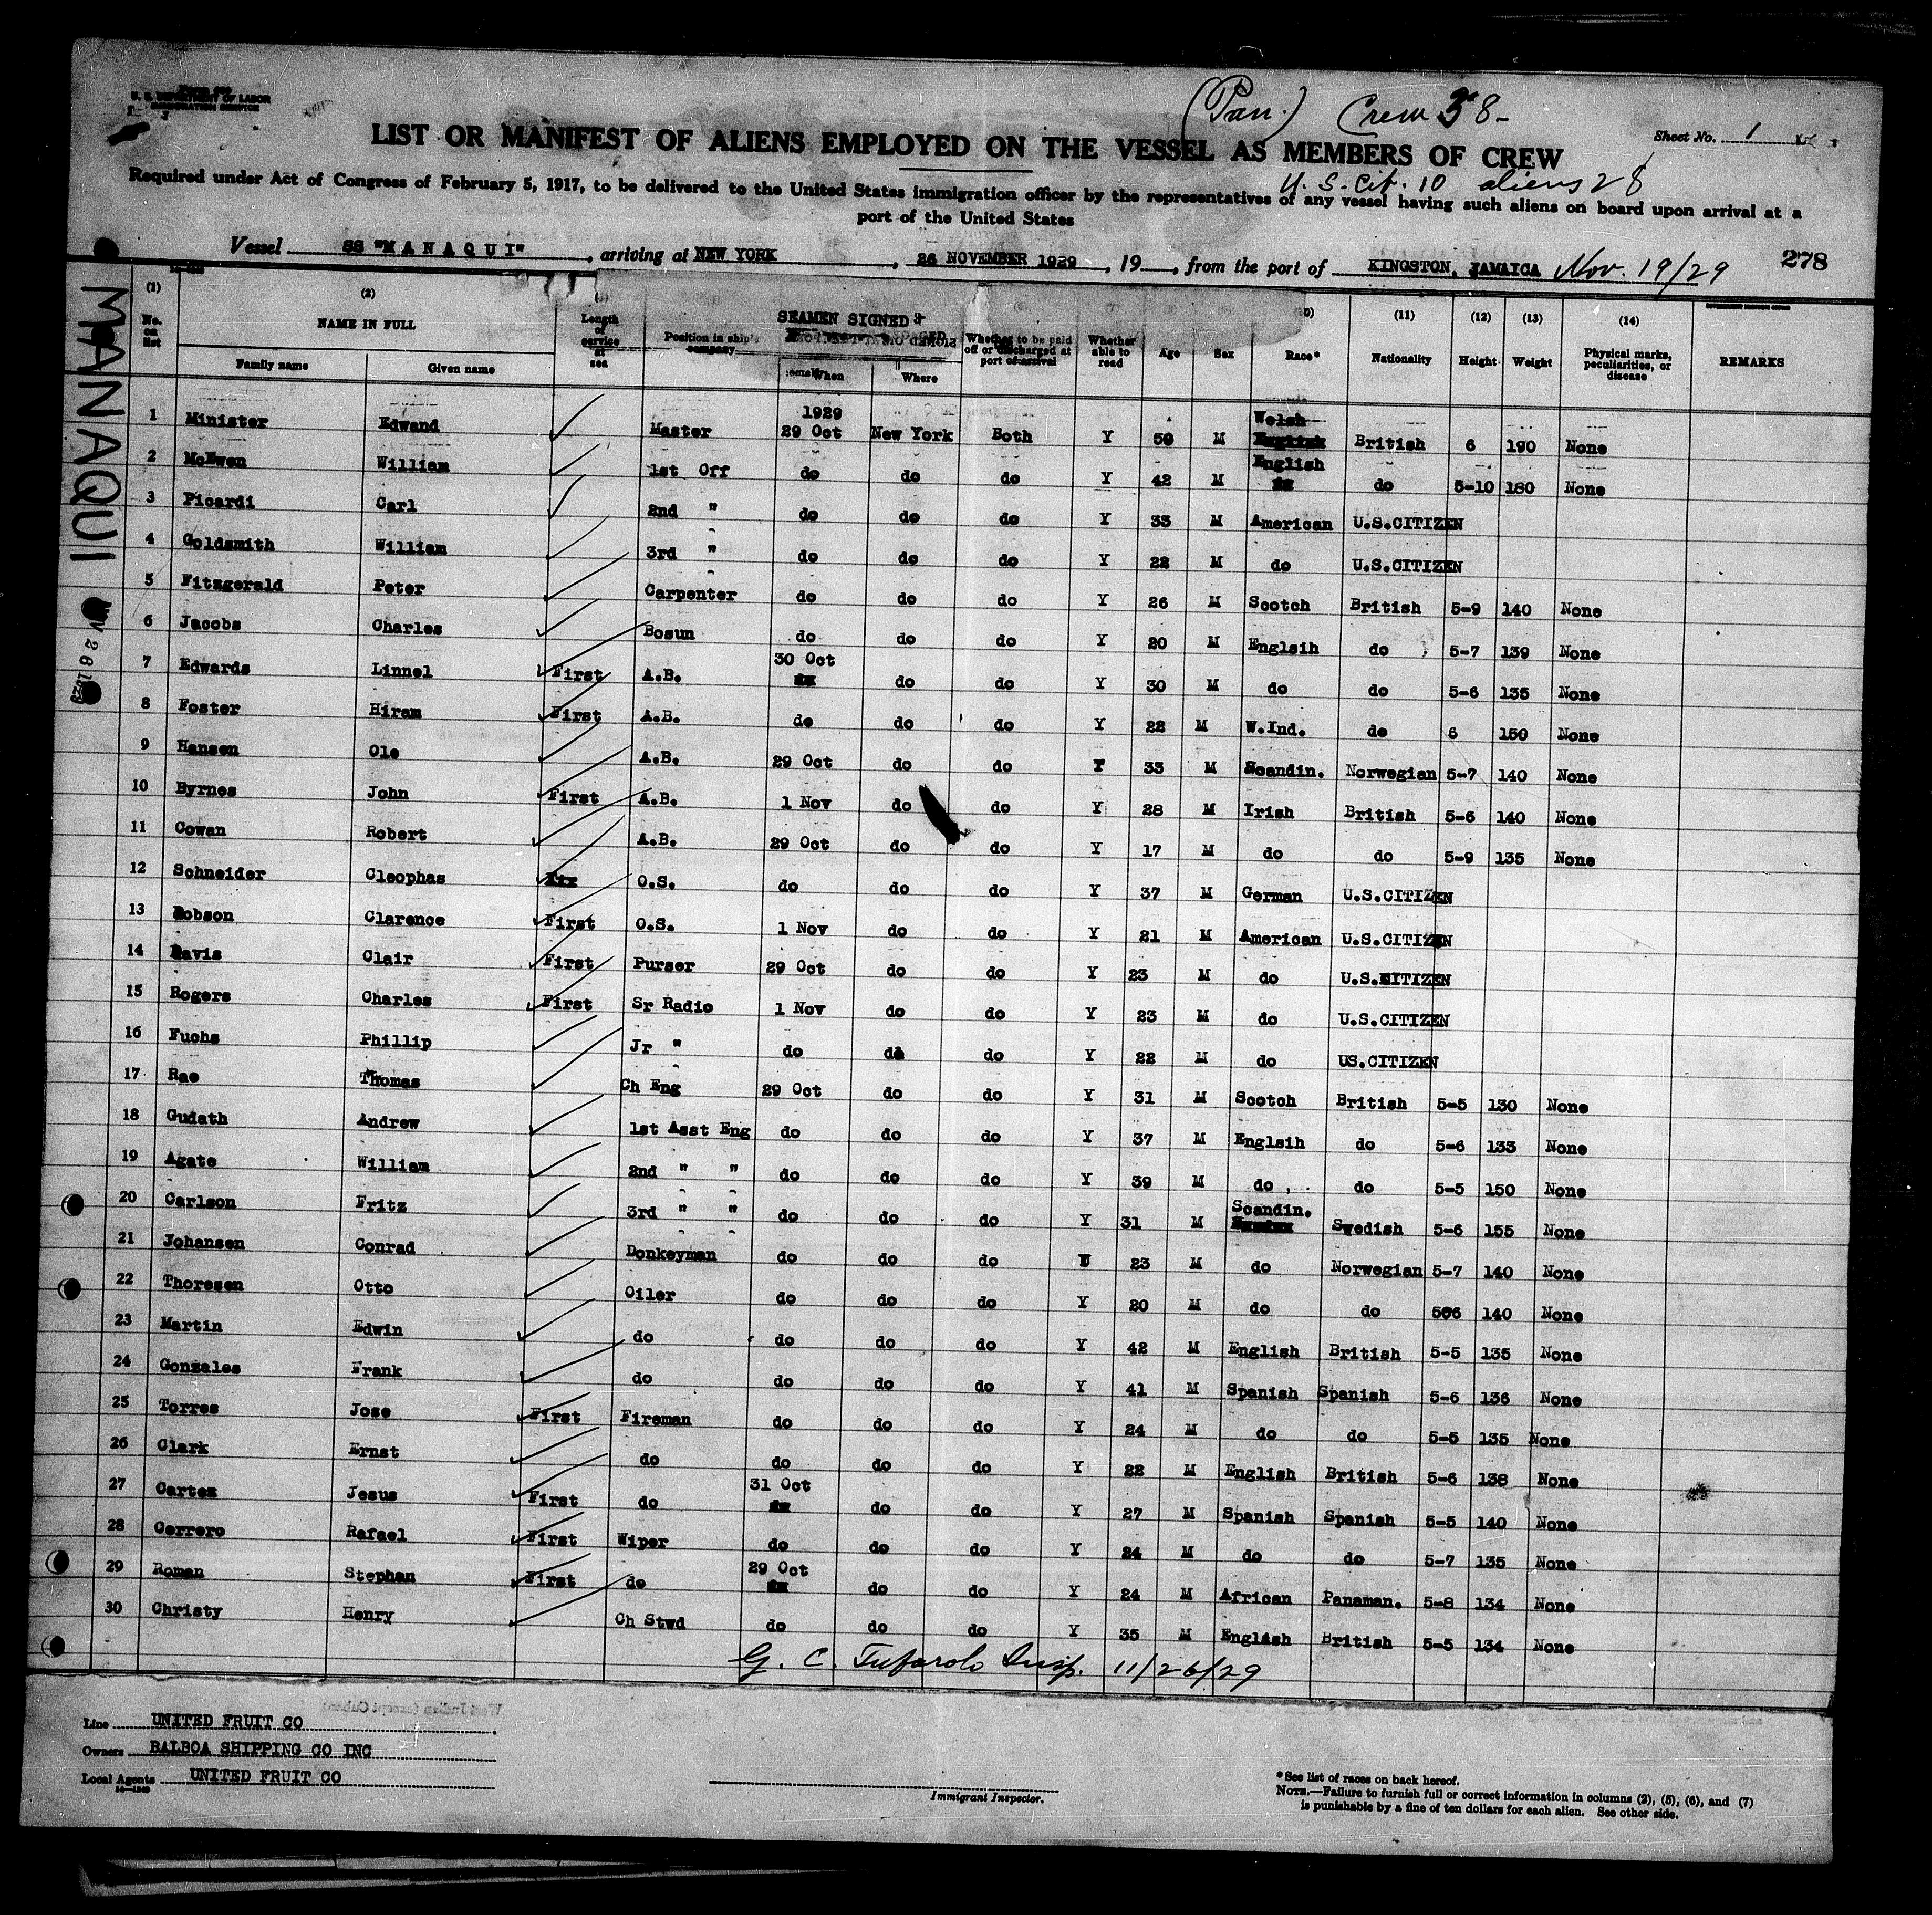 U. S. DEPARTMENT OF LABOR
IMMIGRATION SERVICE
(Pan.) Crew 38-
LIST OR MANIFEST OF ALIENS EMPLOYED ON THE VESSEL AS MEMBERS OF CREW
Sheet No. 1
U.S. Cit. 10 aliens 28
Required under Act of Congress of February 5, 1917, to be delivered to the United States immigration officer by the representatives of any vessel having such aliens on board upon arrival at a
port of the United States
Vessel SS "MANAQUI", arriving at NEW YORK, 26 NOVEMBER 1929, 19, from the port of KINGSTON, JAMAICA Nov. 19/29 278
MANAQUI
(1) (2) (11) (12) (13) (14)
No. on list NAME IN FULL Family name Given name Length of service at sea Position in ship's company SEAMEN SIGNED When Where Whether to be paid off or discharged at port of arrival Whether able to read Age Sex Race* Nationality Height Weight Physical marks, peculiarities, or disease REMARKS
1 Minister Edwand Master 1929 29 Oct New York Both Y 50 M Welsh British 6 190 None
2 McEwen William 1st Off do do do Y 42 M English do 5-10 180 None
3 Picardi Carl 2nd " do do do Y 33 M American U.S.CITIZEN
4 Goldsmith William 3rd " do do do Y 22 M do U.S.CITIZEN
5 Fitzgerald Peter Carpenter do do do Y 26 M Scotch British 5-9 140 None
6 Jacobs Charles Bosun do do do Y 20 M Englsih do 5-7 139 None
7 Edwards Linnel First A.B. 30 Oct do do Y 30 M do do 5-6 135 None
8 Foster Hiram First A.B. do do do Y 22 M W.Ind. do 6 150 None
9 Hansen Ole A.B. 29 Oct do do Y 33 M Scandin. Norwegian 5-7 140 None
10 Byrnes John First A.B. 1 Nov do do Y 28 M Irish British 5-6 140 None
11 Cowan Robert A.B. 29 Oct do do Y 17 M do do 5-9 135 None
12 Schneider Cleophas O.S. do do do Y 37 M German U.S.CITIZEN
13 Robson Clarence First O.S. 1 Nov do do Y 21 M American U.S.CITIZEN
14 Davis Clair First Purser 29 Oct do do Y 23 M do U.S.CITIZEN
15 Rogers Charles First Sr Radio 1 Nov do do Y 23 M do U.S.CITIZEN
16 Fuchs Phillip Jr " do do do Y 22 M do US.CITIZEN
17 Rae Thomas Ch Eng 29 Oct do do Y 31 M Scotch British 5-5 130 None
18 Gudath Andrew 1st Asst Eng do do do Y 37 M Englsih do 5-6 133 None
19 Agate William 2nd " " do do do Y 39 M do do 5-5 150 None
20 Carlson Fritz 3rd " " do do do Y 31 M Scandin. Swedish 5-6 155 None
21 Johansen Conrad Donkeyman do do do 23 M do Norwegian 5-7 140 None
22 Thoresen Otto Oiler do do do Y 20 M do do 506 140 None
23 Martin Edwin do do do do Y 42 M English British 5-5 135 None
24 Gonzales Frank do do do do Y 41 M Spanish Spanish 5-6 136 None
25 Torres Jose First Fireman do do do Y 24 M do do 5-5 135 None
26 Clark Ernst do do do do Y 22 M English British 5-6 138 None
27 Cartez Jesus First do 31 Oct do do Y 27 M Spanish Spanish 5-5 140 None
28 Gerrero Rafael First Wiper do do do Y 24 M do do 5-7 135 None
29 Roman Stephan First do 29 Oct do do Y 24 M African Panaman. 5-8 134 None
30 Christy Henry Ch Stwd do do do Y 35 M English British 5-5 134 None
G. C. Tufarolo Insp. 11/26/29
Line UNITED FRUIT CO
Owners BALBOA SHIPPING CO INC
Local Agents UNITED FRUIT CO
Immigrant Inspector.
*See list of races on back hereof.
NOTE.—Failure to furnish full or correct information in columns (2), (5), (6), and (7)
is punishable by a fine of ten dollars for each alien. See other side.